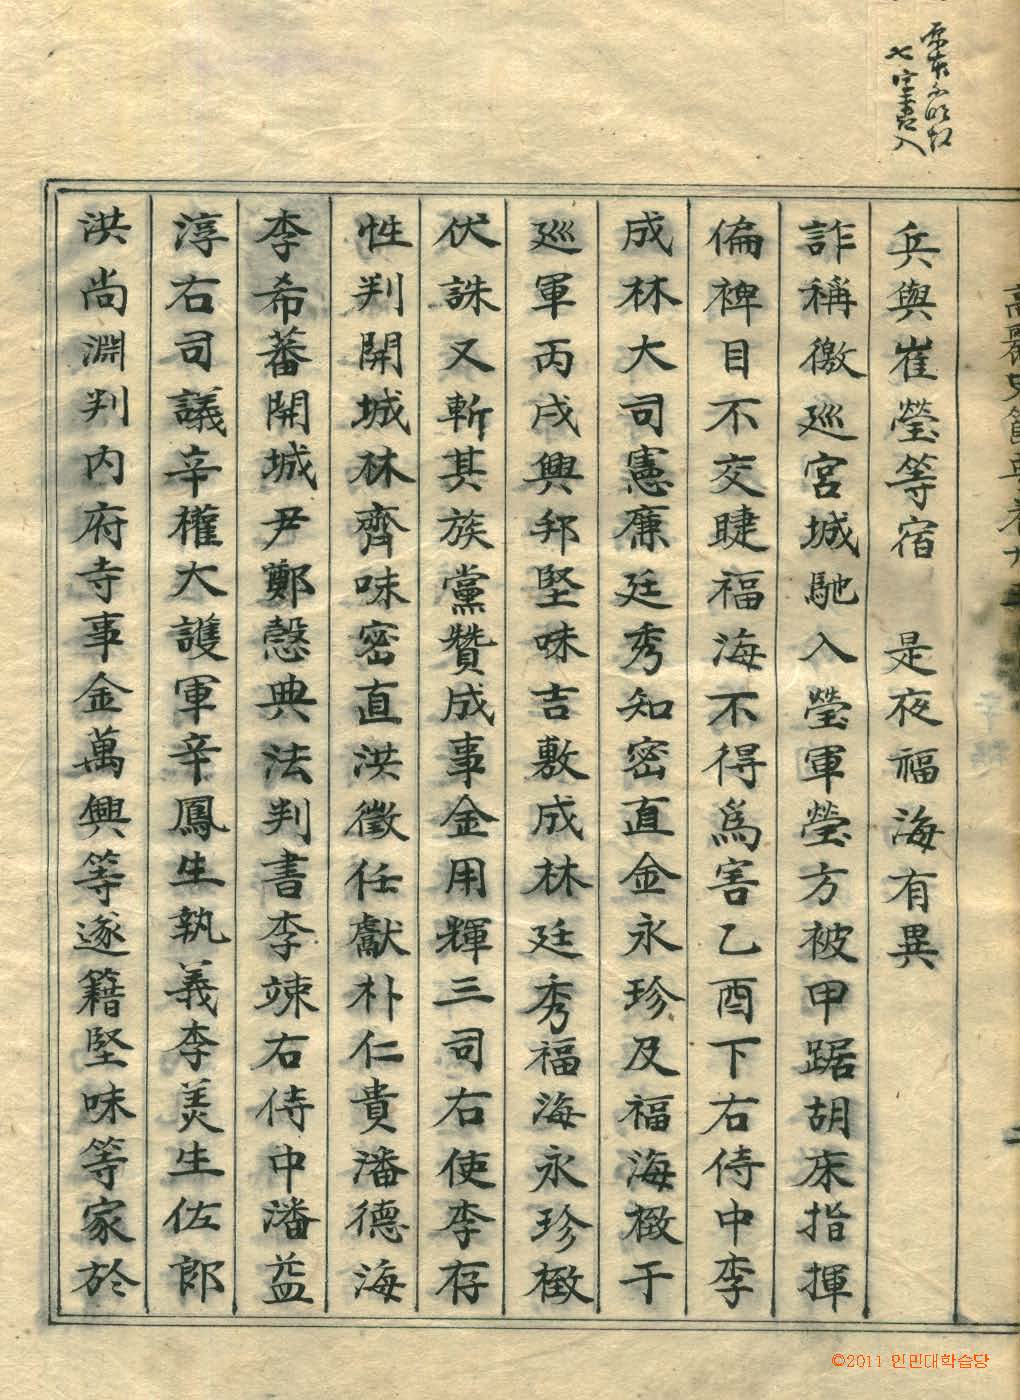 原本不明故
七字書入
高麗史節要卷
兵與崔瑩等宿 是夜福海有異
詐稱徼巡宮城馳入瑩軍瑩方被甲踞胡床指揮
偏裨目不交睫福海不得爲害乙酉下右侍中李
成林大司憲廉廷秀知密直金永珍及福海㮹于
巡軍丙戌興邦堅味吉敷成林廷秀福海永珍㮹
伏誅又斬其族黨贊成事金用輝三司右使李存
性判開城林齊味密直洪徵任獻朴仁貴潘德海
李希蕃開城尹鄭慤典法判書李竦右侍中潘益
淳右司議辛權大護軍辛鳳生執義李美生佐郎
洪尙淵判内府寺事金萬興等遂籍堅味等家於
©2011 인민대학습당